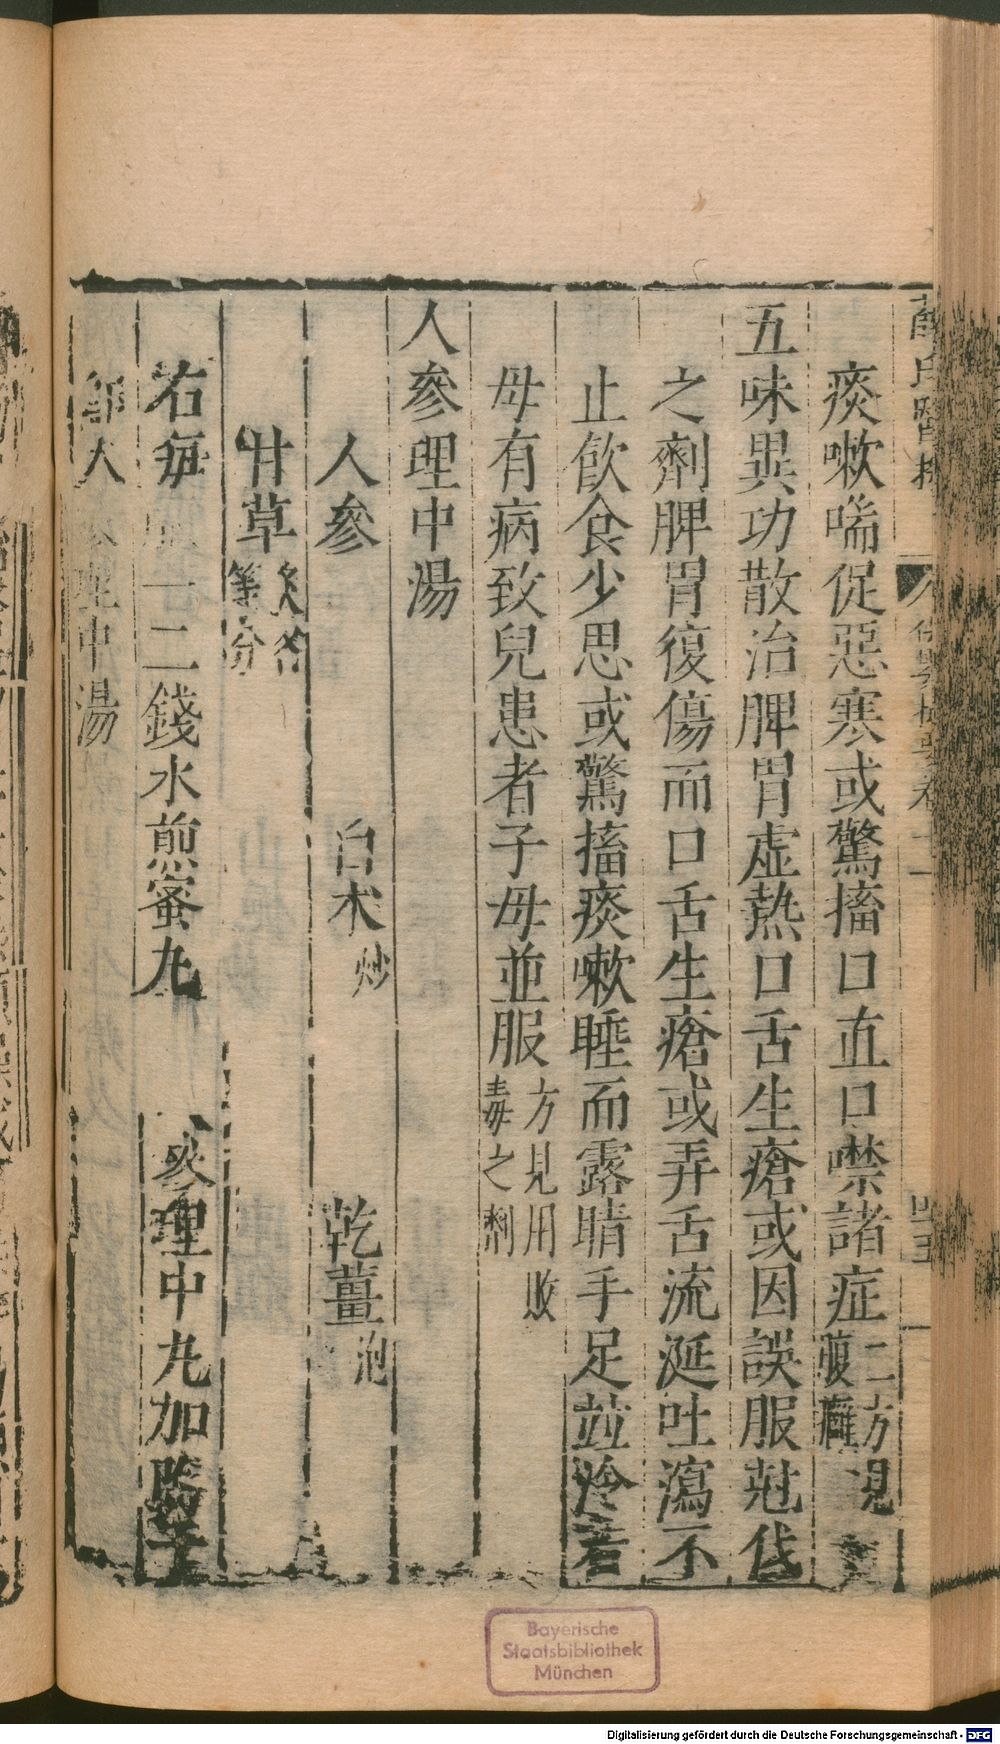 痰嗽喘促惡寒或驚搐口直口噤諸症二方見腹癰
五味異功散治脾胃虛熱口舌生瘡或因誤服尅伐
之劑脾胃復傷而口舌生瘡或弄舌流涎吐瀉不
止飲食少思或驚搐痰嗽睡而露睛手足並冷若
母有病致兒患者子母並服方見用敗毒之劑
人參理中湯
人參 白朮炒 乾薑泡
甘草炙各等分
右每一二錢水煎蜜丸 理中丸加
即人 理中湯
Bayerische
Staatsbibliothek
München
Digitalisierung gefördert durch die Deutsche Forschungsgemeinschaft - DFG